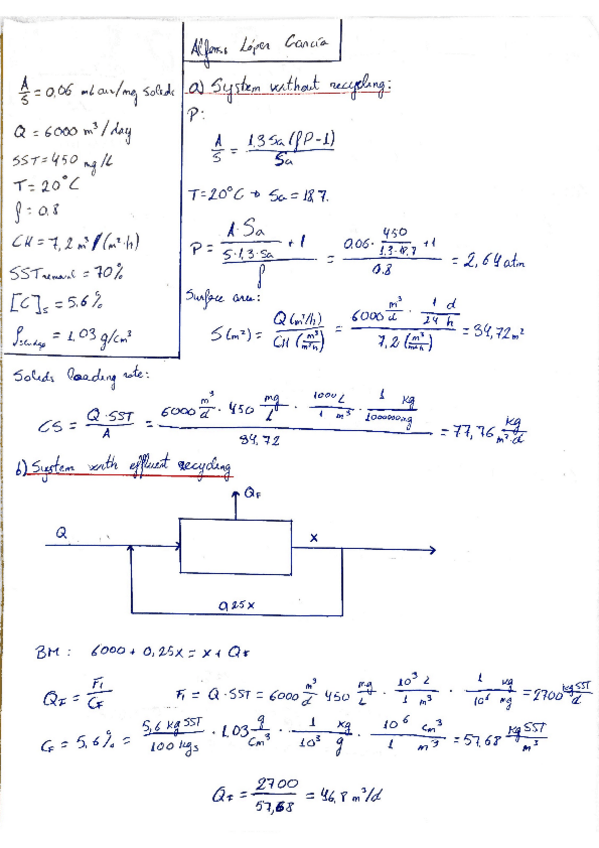 Alfonso López García
A/S = 0,06 ml air/mg solids
Q = 6000 m³/day
SST = 450 mg/L
T = 20°C
f = 0.8
CH = 7,2 m³/(m²·h)
SST removal = 70%
[C]s = 5.6%
ρ = 1,03 g/cm³
a) System without recycling:
P:
A/S = 1,3 Sa (fP-1) / Sa
T = 20°C → Sa = 18.7.
P = ((A·Sa)/(S·1,3·Sa) + 1) / f = (0.06 · 450/(1,3·18,7) + 1) / 0.8 = 2,64 atm
Surface area:
S (m²) = Q (m³/h) / CH (m³/m²h) = (6000 m³/d · 1 d/24 h) / 7,2 (m³/m²h) = 34,72 m²
Solids loading rate:
CS = Q·SST / A = (6000 m³/d · 450 mg/L · 1000 L/1 m³ · 1 kg/1000000 mg) / 34,72 = 77,76 kg/m²·d
b) System with effluent recycling
QF
Q
X
0,25x
BM: 6000 + 0,25x = x + QF
QF = F1/CF F1 = Q·SST = 6000 m³/d 450 mg/L · 10³ L/1 m³ · 1 kg/10⁶ mg = 2700 kg SST/d
CF = 5.6% = 5,6 kg SST/100 kgs · 1.03 g/cm³ · 1 kg/10³ g · 10⁶ cm³/1 m³ = 57,68 kg SST/m³
QF = 2700/57,68 = 46,8 m³/d